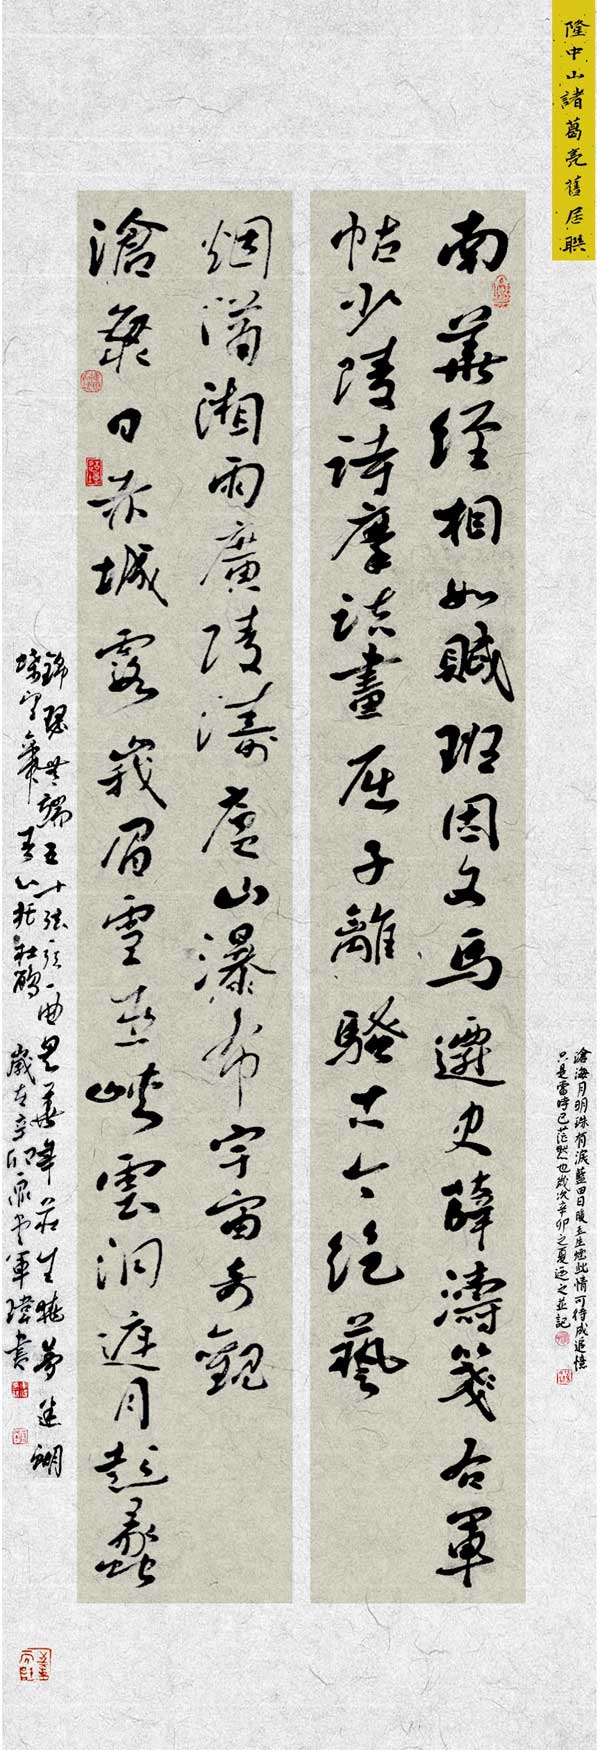 隆中山諸葛亮舊居聯
南華經相如賦班固文馬遷史薛濤箋右軍
帖少陵詩摩詰畫屈子離騷古今絕藝
滄海日赤城霞峩眉雪巫峽雲洞庭月彭蠡
烟瀟湘雨廣陵濤廬山瀑布宇宙奇觀
滄海月明珠有淚藍田日暖玉生烟此情可待成追憶
只是當時已茫然也歲次辛卯之夏並記
錦瑟無端五十弦一曲思華年莊生曉夢迷蝴
蝶春心托杜鵑 歲在辛卯軍書